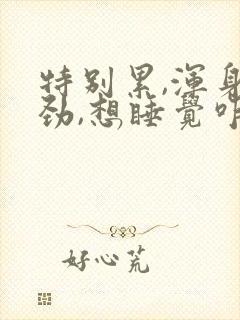 特别累,浑身
劲,想睡觉咋
好心荒